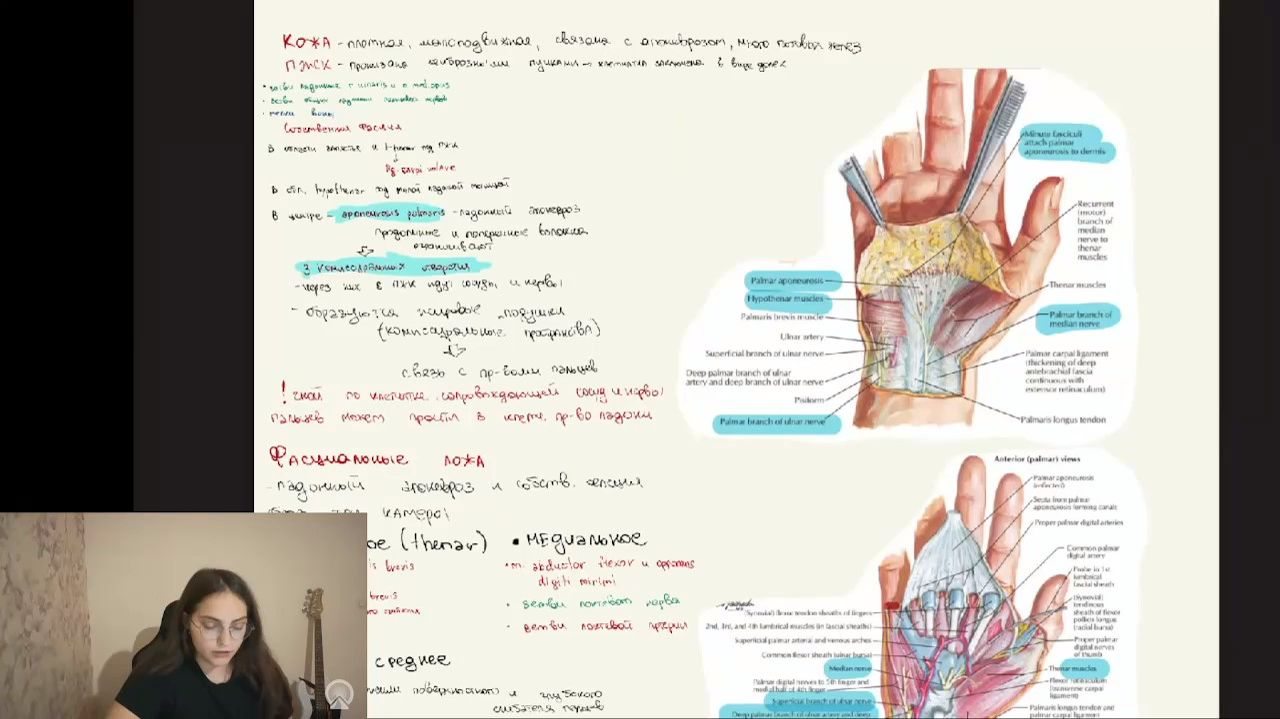 КОЖА - плотная, малоподвижная, связана с апоневрозом, много потовых желез
ПЖК - пронизана фиброзными пучками → клетчатка заключена в виде долек
Собственная фасция
в центре - aponeurosis palmaris - ладонный апоневроз
продольные и поперечные волокна
ограничивают
3 комиссуральных отверстия
- через них в ПЖК идут сосуды и нервы
- образуются жировые подушки
(комиссуральные пространства)
связь с пр-вами пальцев
! гной по клетчатке, сопровождающей сосуды и нервы
пальцев может пройти в клетч. пр-во ладони
Фасциальные ложа
- ладонный апоневроз и собств. фасция
камеры
ое (thenar)
brevis
brevis
• Медиальное
• m. abductor flexor и opponens
digiti minimi
• ветви локтевого нерва
• ветви локтевой артерии
среднее
поверхностного и глубокого
Minute fasciculi
attach palmar
aponeurosis to dermis
Recurrent
(motor)
branch of
median
nerve to
thenar
muscles
Palmar aponeurosis
Hypothenar muscles
Palmaris brevis muscle
Ulnar artery
Superficial branch of ulnar nerve
Deep palmar branch of ulnar
artery and deep branch of ulnar nerve
Pisiform
Palmar branch of ulnar nerve
Thenar muscles
Palmar branch of
median nerve
Palmar carpal ligament
(thickening of deep
antebrachial fascia
continuous with
extensor retinaculum)
Palmaris longus tendon
Anterior (palmar) views
Palmar aponeurosis
(reflected)
Septa from palmar
aponeurosis forming canals
Proper palmar digital arteries
Common palmar
digital artery
Probe in 1st
lumbrical
fascial sheath
(Synovial)
tendinous
sheath of flexor
pollicis longus
(radial bursa)
Proper palmar
digital nerves
of thumb
Thenar muscles
Flexor retinaculum
(transverse carpal
ligament)
Palmaris longus tendon and
palmar carpal ligament
(Synovial) flexor tendon sheaths of fingers
2nd, 3rd, and 4th lumbrical muscles (in fascial sheaths)
Superficial palmar arterial and venous arches
Common flexor sheath (ulnar bursa)
Median nerve
Palmar digital nerves to 5th finger and
medial half of 4th finger
Superficial branch of ulnar nerve
Deep palmar branch of ulnar artery and deep